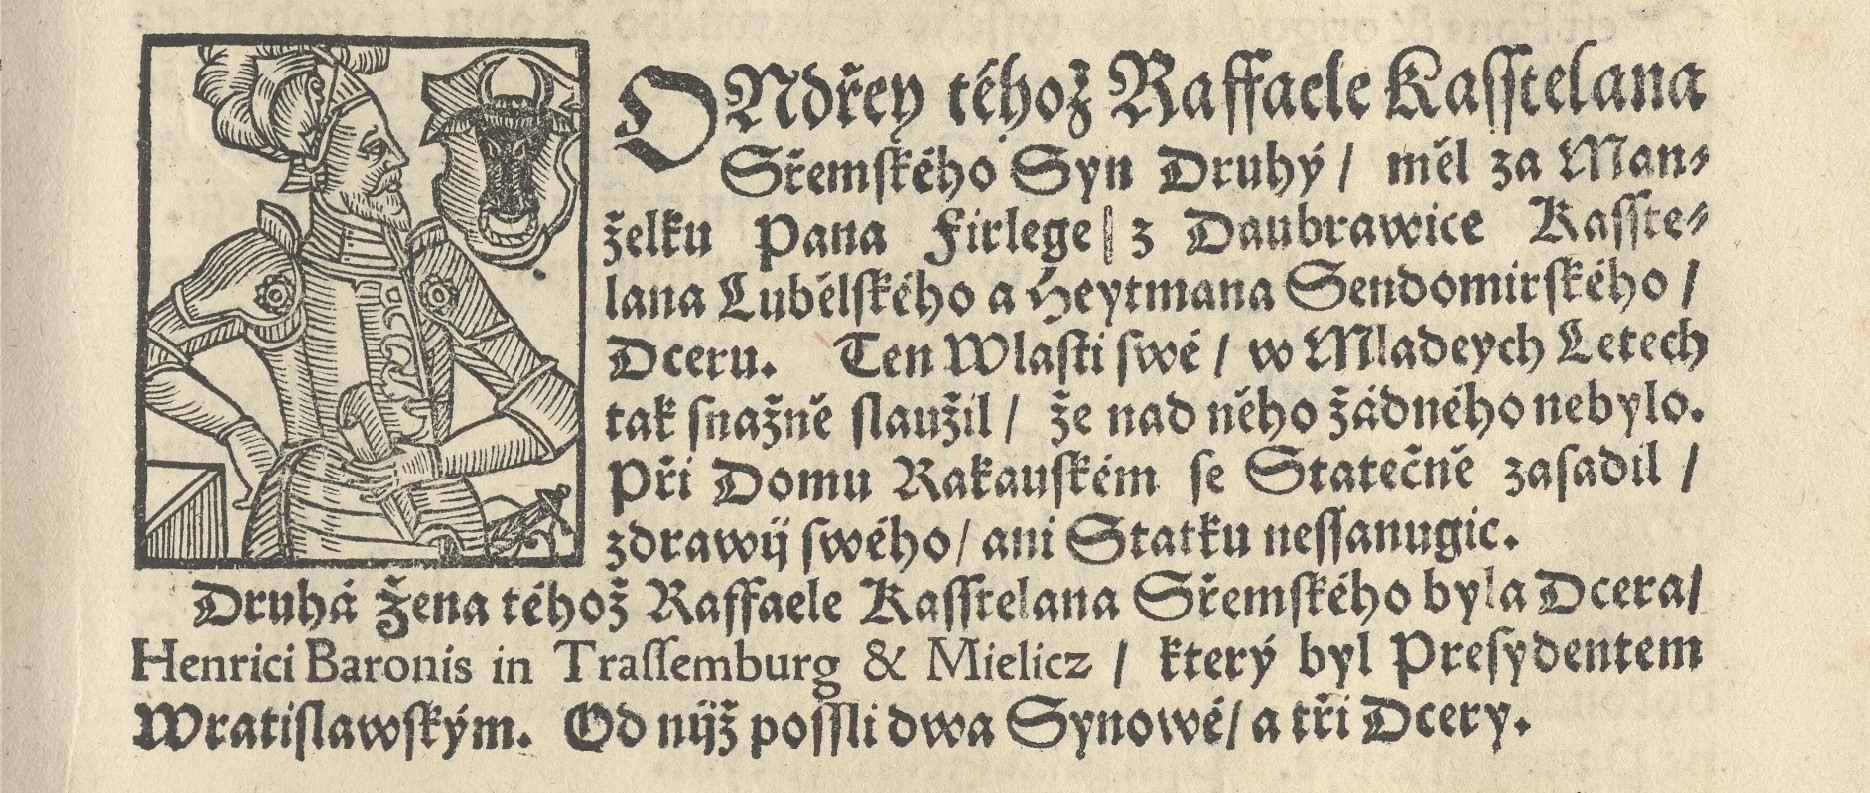 ONdřey téhož Raffaele Kaſſtelana
Sřemſkého Syn Druhý / měl za Man⸗
želku Pana Firlege / z Daubrawice Kaſſte⸗
lana Lubělſkého a Heytmana Sendomirſkého /
Dceru. Ten Wlaſti ſwé / w Mladeych Letech
tak ſnažně ſlaužil / že nad něho žádného nebylo.
Při Domu Rakauſkém ſe Statečně zaſadil /
zdrawij ſwého / ani Statku neſſanugic.
Druhá Žena téhož Raffaele Kaſſtelana Sřemſkého byla Dcera /
Henrici Baronis in Traſſemburg & Mielicz / který byl Preſydentem
Wratiſlawſkým. Od nijž poſſli dwa Synowé / a tři Dcery.